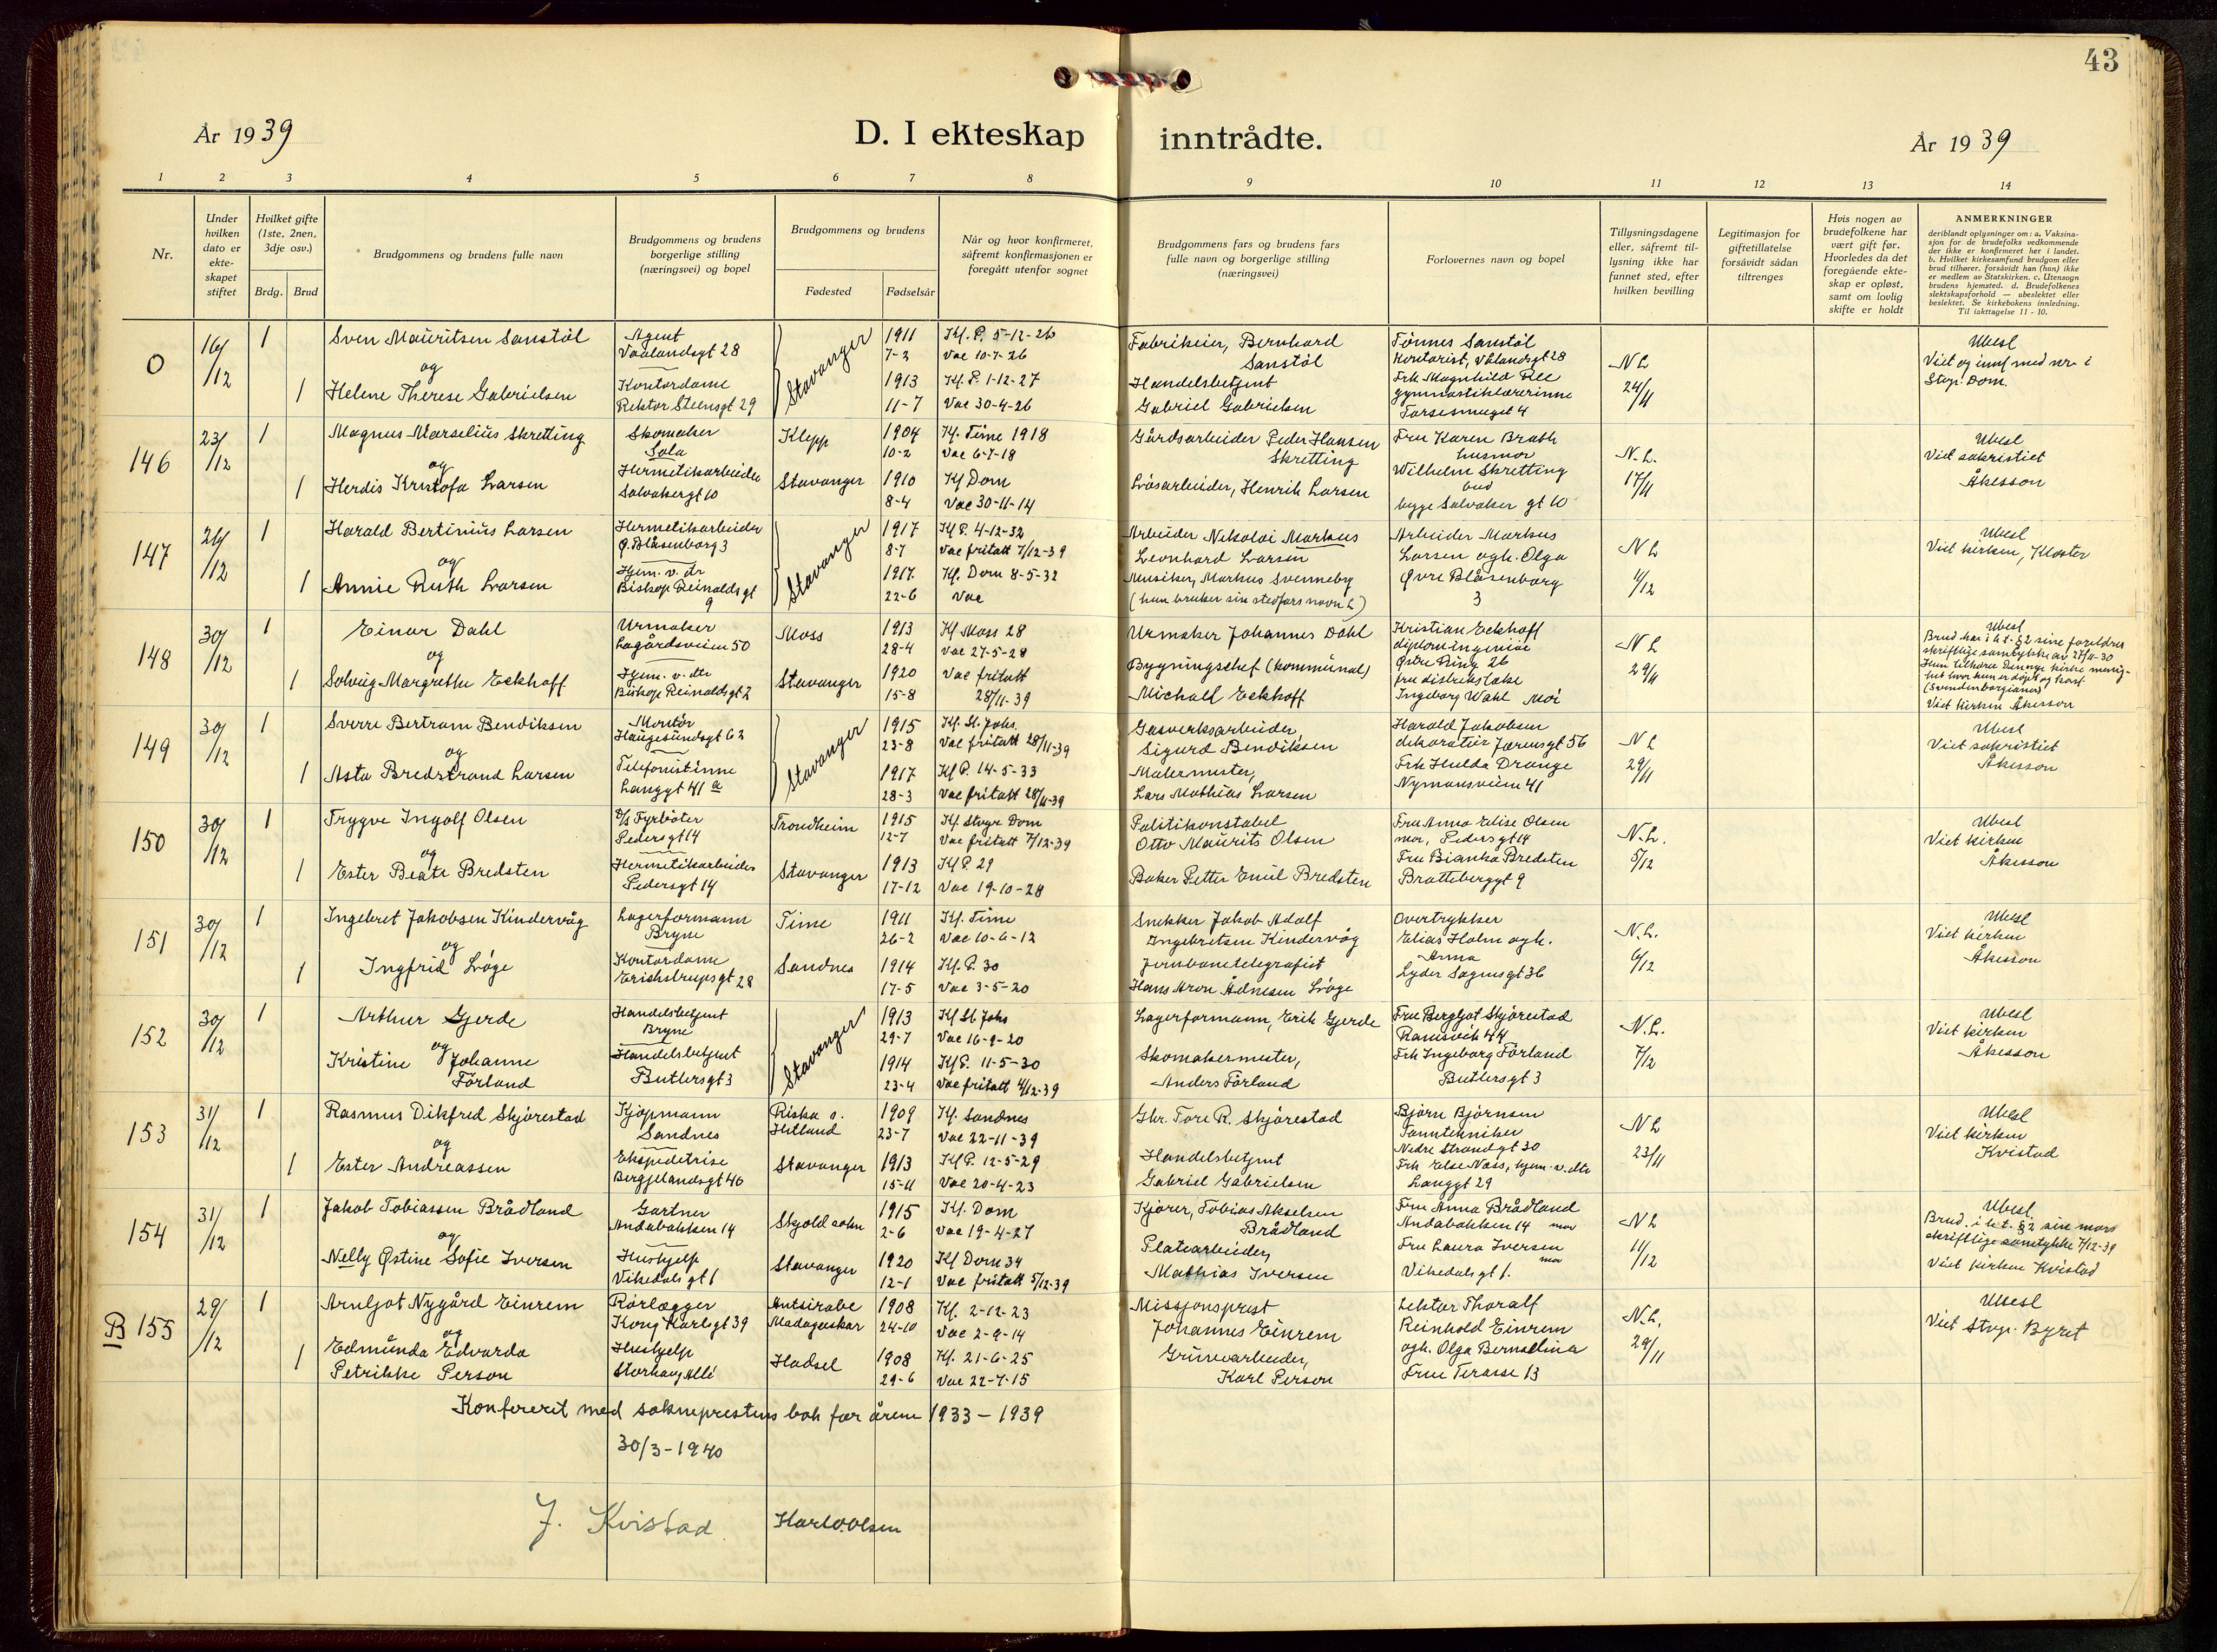 43
År 1939
D. I ekteskap inntrådte.
År 1939
1 2 3 4 5 6 7 8 9 10 11 12 13 14
Nr.
Under hvilken dato er ekte-skapet stiftet
Hvilket gifte (1ste, 2nen, 3dje osv.)
Brdg. Brud
Brudgommens og brudens fulle navn
Brudgommens og brudens borgerlige stilling (næringsvei) og bopel
Brudgommens og brudens
Fødested Fødselsår
Når og hvor konfirmeret, såfremt konfirmasjonen er foregått utenfor sognet
Brudgommens fars og brudens fars fulle navn og borgerlige stilling (næringsvei)
Forlovernes navn og bopel
Tillysningsdagene eller, såfremt til-lysning ikke har funnet sted, efter hvilken bevilling
Legitimasjon for giftetillatelse forsåvidt sådan tiltrenges
Hvis nogen av brudefolkene har vært gift før. Hvorledes da det foregående ekte-skap er opløst, samt om lovlig skifte er holdt
ANMERKNINGER
deriblandt oplysninger om: a. Vaksina-
sjon for de brudefolks vedkommende
der ikke er konfirmeret her i landet.
b. Hvilket kirkesamfund brudgom eller
brud tilhører, forsåvidt han (hun) ikke
er medlem av Statskirken. c. Utensogn
brudens hjemsted. d. Brudefolkenes
slektskapsforhold — ubeslektet eller
beslektet. Se kirkebokens innledning.
Til iakttagelse 11 - 10.
0 16/12 1 Sven Mauritsen Sanstöl Agent Vaalandsgt 28 Stavanger 1911 7-3 Kf. P. 5-12-26 Vac 10-7-26 Fabrikeier, Bernhard Sanstöl Tönnes Sanstöl Kontorist, Vålandsgt 28 NL 24/11 Ubesl
og
1 Helene Therese Gabrielsen Kontordame Rektor Steensgt 29 1913 11-7 Kf. P. 1-12-27 Vac 30-4-26 Handelsbetjent Gabriel Gabrielsen Frk Magnhild Ree gymnastiklærerinne Torsesmuget 4 Viet og innf med nr i Stvgr. Dom.
146 23/12 1 Magnus Marselius Skretting Skomaker Sola Klepp 1904 10-2 Kf. Time 1918 Vac 6-7-18 Gårdsarbeider Peder Hansen Skretting Fru Karen Brath husmor N.L. 17/11 Ubesl Viet sakristiet Åkesson
og
1 Herdis Kristofa Larsen Hermetikarbeider Solvakergt 10 Stavanger 1910 8-4 Kf Dom Vac 30-11-14 Lösarbeider, Henrik Larsen Wilhelm Skretting bud begge Solvaker gt 10
147 26/12 1 Harald Bertinius Larsen Hermetikarbeider Ø. Blåsenborg 3 Stavanger 1917 8-7 Kf P. 4-12-32 Vac fritatt 7/12-39 Arbeider Nikolai Markus Leonhard Larsen Arbeider Markus Larsen ogh. Olga NL 11/12 Ubesl Viet kirken, Kloster
og
1 Annie Ruth Larsen Hjem. v. dr Biskop Reinaldsgt 9 1917. 22-6 Kf. Dom 8-5-32 Vac Musiker, Markus Svenneby (hun bruker sin stedfars navn L) Øvre Blåsenborg 3
148 30/12 1 Einar Dahl Urmaker Lagårdsveien 50 Moss 1913 28-4 Kf Moss 28 Vac 27-5-28 Urmaker Johannes Dahl Kristian Eckhoff diplomingeniör Østre Ring 26 NL 29/11 Ubesl
og
1 Solveig Margrethe Eckhoff Hjem. v. dtr Biskop Reinaldsgt 2 Stavanger 1920 15-8 Vac fritatt 28/11-39 Bygningschef (kommunal) Michael Eckhoff fru distriktslæke Ingeborg Wahl Moi
Brud har i h.t. §2 sine foreldres skriftlige samtykke av 27/11-30
Hun tilhører Den nye kirkes menig-het hvor hun er döpt og konf. (Svendenborgianer)
Viet kirken Åkesson
149 30/12 1 Sverre Bertram Bendiksen Montör Haugesundsgt 62 Stavanger 1915 23-8 Kf. St. Johs, Vac fritatt 28/11-39 Gasverksarbeider, Sigurd Bendiksen Harald Jakobsen dekoratör Jærensgt 56 NL 29/11 Ubesl Viet sakristiet Åkesson
og
1 Asta Bredstrand Larsen Telefonistinne Langgt 41 a 1917 28-3 Kf P. 14-5-33 Vac fritatt 28/11-39 Malermester, Lars Mathias Larsen Frk Hulda Drange Nymansveien 41
150 30/12 1 Trygve Ingolf Olsen D/S Fyrböter Pedersgt 14 Trondheim 1915 12-7 Kf Stvgr Dom Vac fritatt 7/12-39 Politikonstabel Otto Maurits Olsen Fru Anna Elise Olsen mor, Pedersgt 14 N.L. 5/12 Ubesl Viet kirken Åkesson
og
1 Ester Beate Bredsten Hermetikarbeider Pedersgt 14 Stavanger 1913 17-12 Kf P. 29 Vac 19-10-28 Baker Petter Emil Bredsten Fru Bianka Bredsten Brattebergt 9
151 30/12 1 Ingebret Jakobsen Kindervåg Lagerformann Bryne Time 1911 26-2 Kf. Time Vac 10-6-12 Snekker Jakob Adolf Ingebretsen Kindervåg Overtrykker Elias Holm ogh. Anna N.L. 6/12 Ubesl Viet kirken Åkesson
og
1 Ingfrid Löge Kontordame Erichstrupsgt 28 Sandnes 1914 17-5 Kf. P. 30 Vac 3-5-20 Jernbanetelegrafist Hans Aron Ådnesen Löge Lyder Sagensgt 36
152 30/12 1 Arthur Gjerde Handelsbetjent Bryne Stavanger 1913 29-7 Kf St. Johs Vac 16-9-20 Lagerformann, Erik Gjerde Fru Bergljot Skjörestad Ramsvik 44 N.L. 7/12 Ubesl Viet kirken Åkesson
og
1 Kristine Johanne Förland Handelsbetjent Butlersgt 3 1914 23-4 Kf P. 11-5-30 Vac fritatt 4/12-39 Skomakermester, Anders Förland Frk Ingeborg Förland Butlersgt 3
153 31/12 1 Rasmus Dikfred Skjörestad Kjöpmann Sandnes Riska s. Hetland 1909 23-7 Kf. Sandnes Vac 22-11-39 Gbr. Tore R. Skjörestad Björn Björnsen Tanntekniker Nedre Strandgt 30 NL 23/11 Ubesl Viet kirken Kvistad
og
1 Ester Andreassen Ekspeditrise Bergjelandsgt 46 Stavanger 1913 15-11 Kf P. 12-5-29 Vac 20-4-23 Handelsbetjent Gabriel Gabrielsen Frk Else Næss, hjem. v. dtr Langgt 29
154 31/12 1 Jakob Tobiassen Brådland Gartner Andabakken 14 Skjold sokn 1915 2-6 Kf. Dom Vac 19-4-27 Kjörer, Tobias Akselsen Brådland Fru Anna Brådland Andabakken 14 mor NL 11/12 Ubesl.
og
1 Nelly Østine Sofie Iversen Hushjelp Vikedalsgt 1 Stavanger 1920 12-1 Kf Dom 34 Vac fritatt 5/12-39 Platearbeider, Mathias Iversen Fru Laura Iversen mor Vikedalsgt 1.
Brud. i h.t. §2 sin mors skriftlige samtykke 7/12-39
Viet kirken Kvistad
B 155 29/12 1 Arnljot Nygård Einrem Rörlægger Kong Karlsgt 39 Antsirabe Madagaskar 1908 24-10 Kf. 2-12-23 Vac 2-9-14 Missjonsprest Johannes Einrem Lektor Thoralf Reinhold Einrem N.L. 29/11 Ubesl Viet Stvgr. Byret
og
1 Edmunda Edvarda Petrikke Person Hushjelp Storhaug Allé Hadsel 1908 29-6 Kf. 21-6-25 Vac 22-7-15 Gruvearbeider, Karl Person ogh. Olga Bernseline Frue Terasse 13
Konferert med sokneprestens bok for årene 1933 - 1939
30/3-1940
J. Kvistad Harl O. Olsen